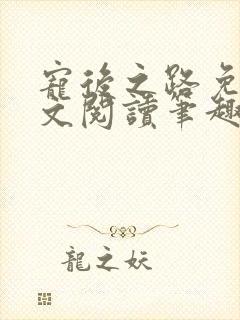 寵後之路免
文閱讀筆趣
龍之妖